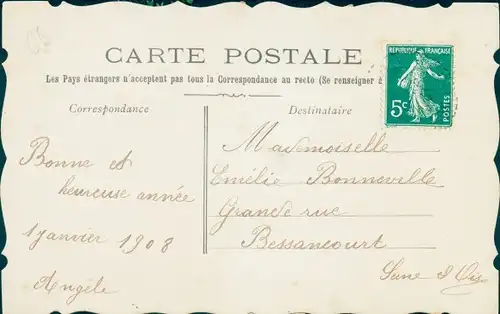 CARTE POSTALE
Les Pays étrangers n'acceptent pas tous la Correspondance au recto (Se renseigner à
Correspondance
Destinataire
RÉPUBLIQUE FRANÇAISE
POSTES
5c
Bonne et
heureuse année
1 janvier 1908
Angèle
Mademoiselle
Emélie Bonneville
Grande rue
Bessancourt
Seine & Oise